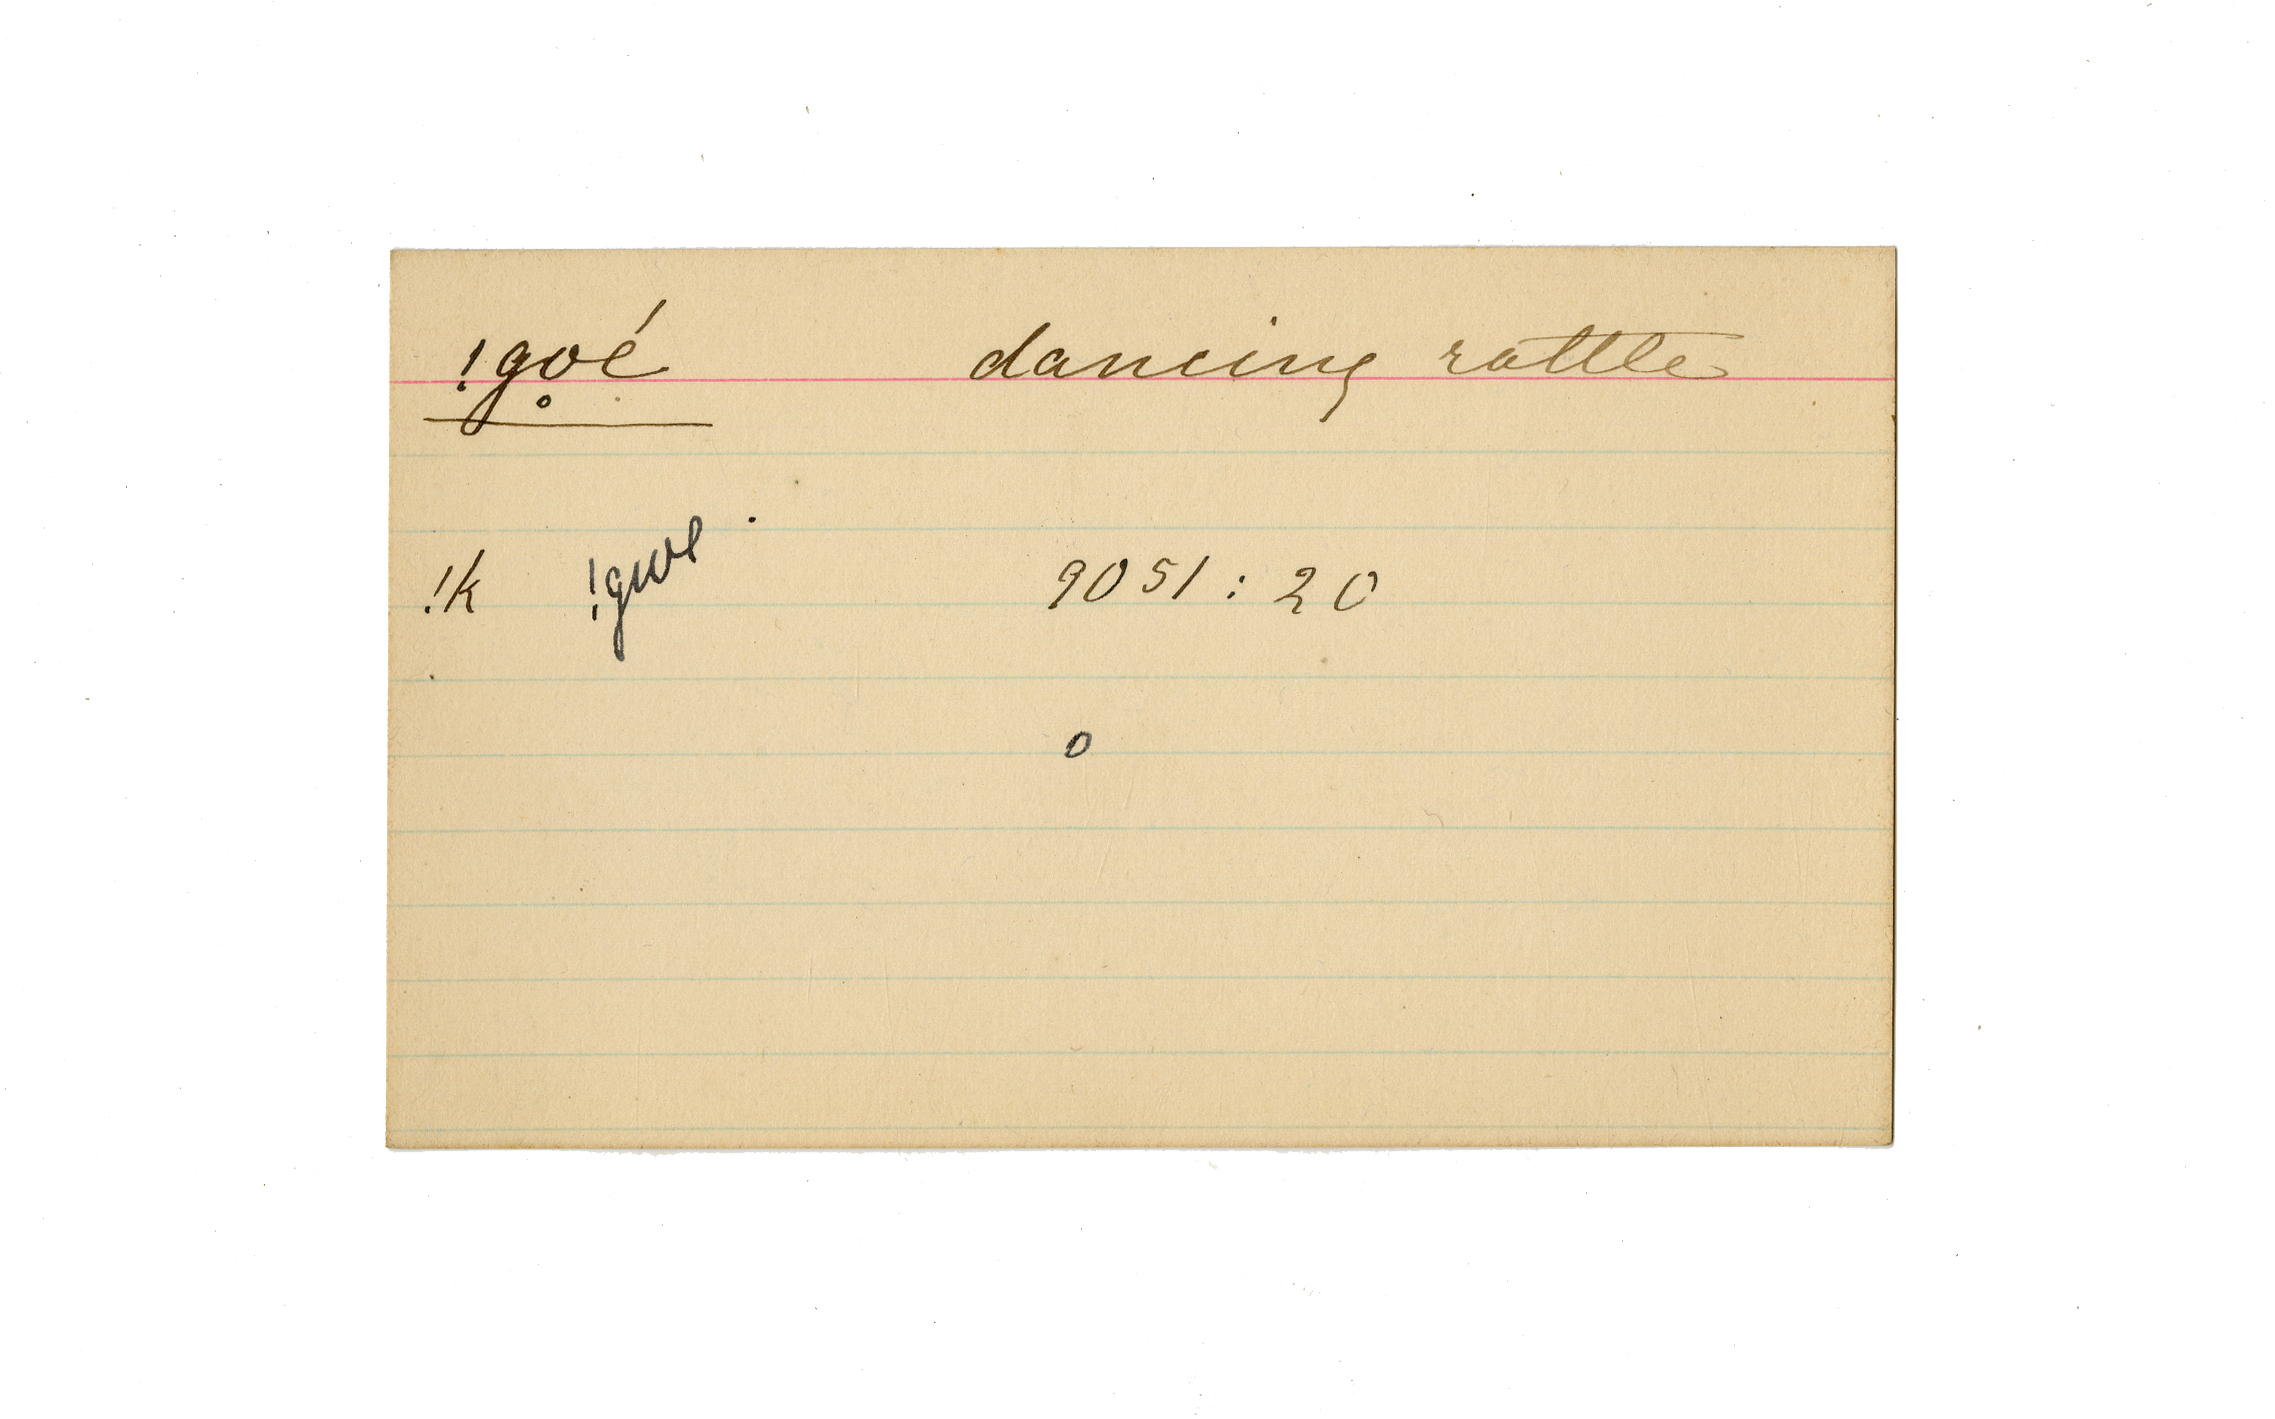 !go̥é dancing rattle
!k !gwe 9051 : 20
o